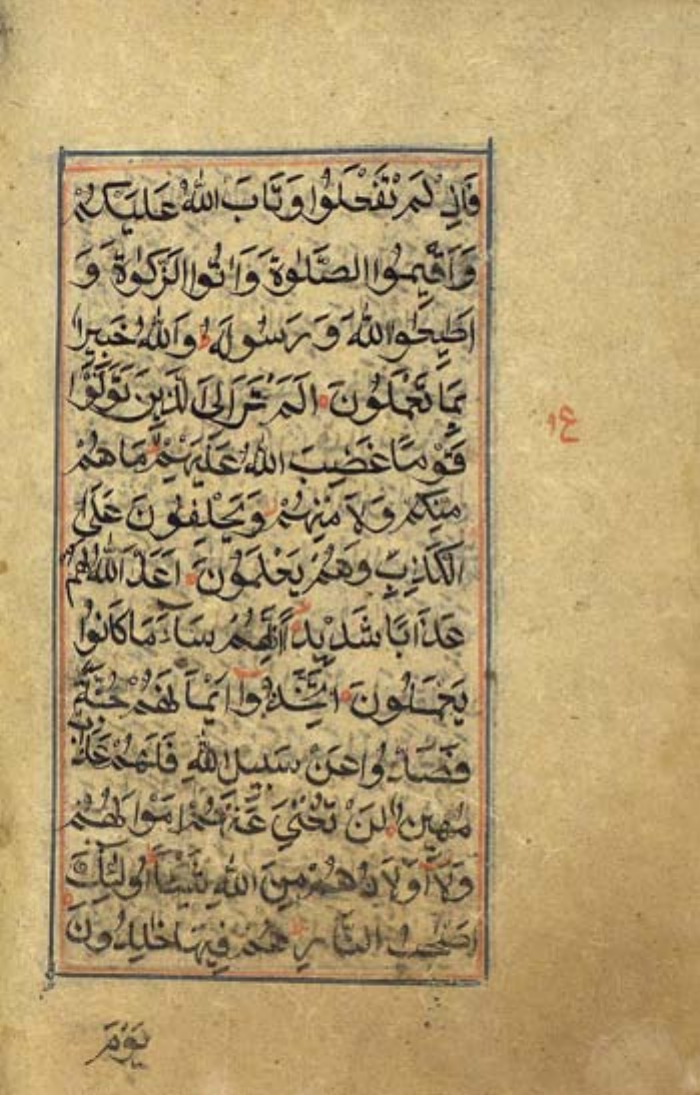 فَاِذْ لَمْ تَفْعَلُوْا وَتَابَ اللّٰهُ عَلَيْكُمْ
وَاَقِيْمُوا الصَّلٰوةَ وَاٰتُوا الزَّكٰوةَ وَ
اَطِيْعُوا اللّٰهَ وَرَسُوْلَهٗ وَاللّٰهُ خَبِيْرٌۢا
بِمَا تَعْمَلُوْنَ اَلَمْ تَرَ اِلَى الَّذِيْنَ تَوَلَّوْا
قَوْمًا غَضِبَ اللّٰهُ عَلَيْهِمْ مَاهُمْ
مِنْكُمْ وَلَا مِنْهُمْ وَيَحْلِفُوْنَ عَلَى
الْكَذِبِ وَهُمْ يَعْلَمُوْنَ اَعَدَّ اللّٰهُ لَهُمْ
عَذَابًا شَدِيْدًا اِنَّهُمْ سَآءَ مَا كَانُوْا
يَعْمَلُوْنَ اِتَّخَذُوْا اَيْمَانَهُمْ جُنَّةً
فَصَدُّوْا عَنْ سَبِيْلِ اللّٰهِ فَلَهُمْ عَذَابٌ
مُهِيْنٌ لَنْ تُغْنِيَ عَنْهُمْ اَمْوَالُهُمْ
وَلَآ اَوْلَادُهُمْ مِنَ اللّٰهِ شَيْئًا اُولٰٓئِكَ
اَصْحٰبُ النَّارِ هُمْ فِيْهَا خٰلِدُوْنَ
يَوْمَ